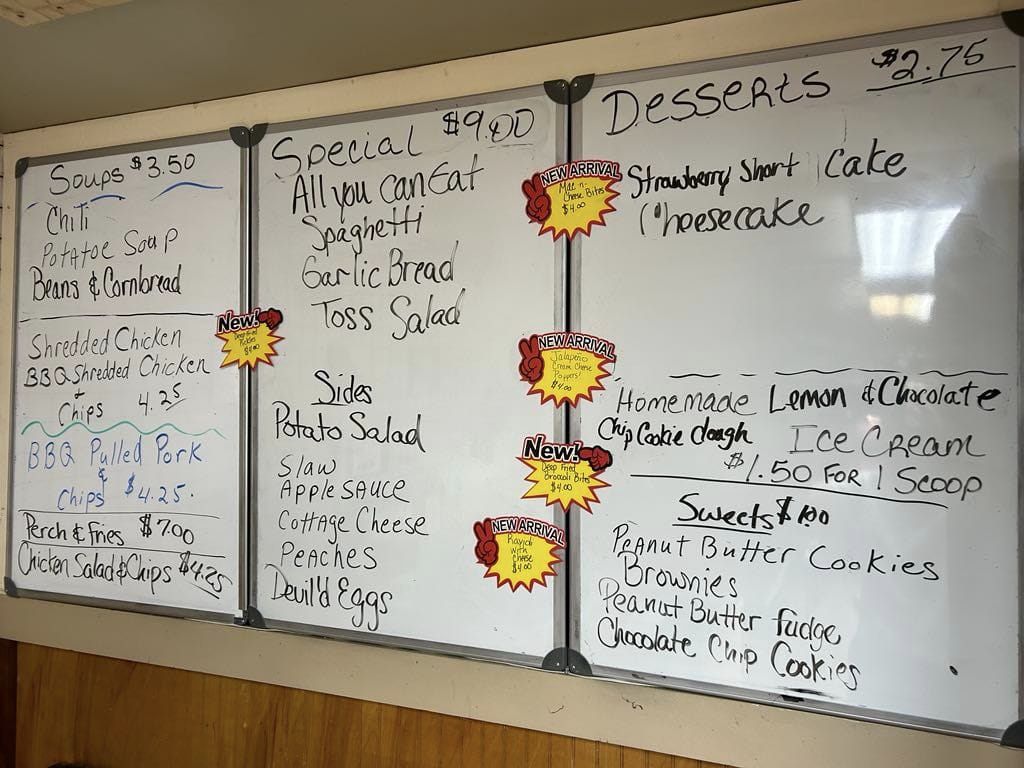 Soups $3.50
Chili
Potatoe Soup
Beans & Cornbread
Shredded Chicken
BBQ Shredded Chicken
+
Chips 4.25
BBQ Pulled Pork
&
Chips $4.25.
Perch & Fries $7.00
Chicken Salad & Chips $4.25
New!
Deep Fried
Pickles
$4.00
Special $9.00
All you can Eat
Spaghetti
Garlic Bread
Toss Salad
Sides
Potato Salad
Slaw
Apple Sauce
Cottage Cheese
Peaches
Devil'd Eggs
NEW ARRIVAL
Mac n-
Cheese Bites
$4.00
NEW ARRIVAL
Jalapeño
Cream Cheese
Poppers!
$4.00
New!
Deep Fried
Broccoli Bites
$4.00
NEW ARRIVAL
with
Cheese
$4.00
Desserts $2.75
Strawberry Short Cake
Cheesecake
Homemade Lemon & Chocolate
Chip Cookie dough Ice Cream
$1.50 For 1 Scoop
Sweets $1.00
Peanut Butter Cookies
Brownies
Peanut Butter fudge
Chocolate Chip Cookies